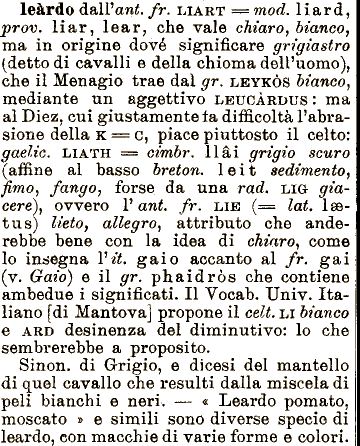 leàrdo dall'ant. fr. LIART = mod. liard,
prov. liar, lear, che vale chiaro, bianco,
ma in origine dové significare grigiastro
(detto di cavalli e della chioma dell'uomo),
che il Menagio trae dal gr. LEYKÒS bianco,
mediante un aggettivo LEUCÀRDUS: ma
al Diez, cui giustamente fa difficoltà l'abra-
sione della K = C, piace piuttosto il celto:
gaelic. LIATH = cimbr. llâi grigio scuro
(affine al basso breton. leit sedimento,
fimo, fango, forse da una rad. LIG gia-
cere), ovvero l'ant. fr. LIE (= lat. læ-
tus) lieto, allegro, attributo che ande-
rebbe bene con la idea di chiaro, come
lo insegna l'it. gaio accanto al fr. gai
(v. Gaio) e il gr. phaidròs che contiene
ambedue i significati. Il Vocab. Univ. Ita-
liano [di Mantova] propone il celt. LI bianco
e ARD desinenza del diminutivo: lo che
sembrerebbe a proposito.
Sinon. di Grigio, e dicesi del mantello
di quel cavallo che resulti dalla miscela di
peli bianchi e neri. — « Leardo pomato,
moscato » e simili sono diverse specie di
leardo, con macchie di varie forme e colori.